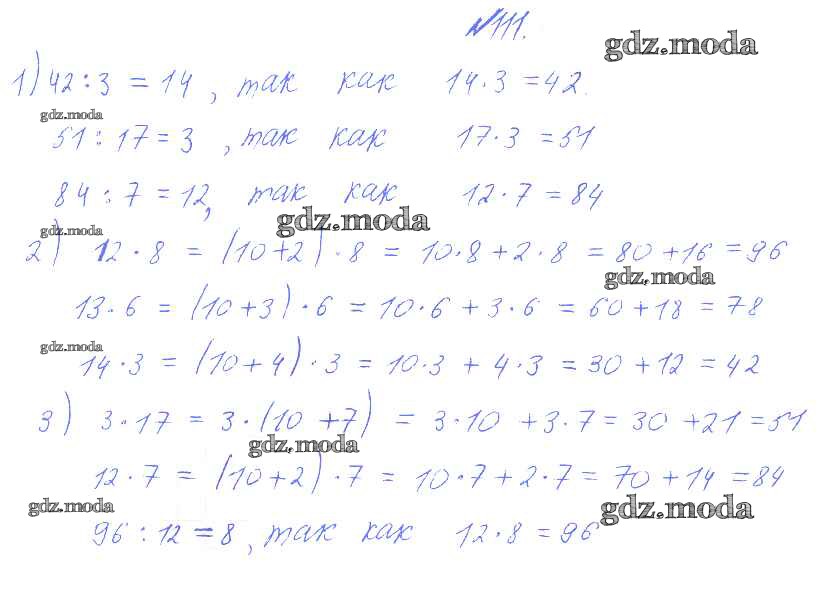 №111.
gdz.moda
1) 42 : 3 = 14, так как 14 · 3 = 42.
gdz.moda
51 : 17 = 3, так как 17 · 3 = 51
84 : 7 = 12, так как 12 · 7 = 84
gdz.moda
gdz.moda
2) 12 · 8 = (10 + 2) · 8 = 10 · 8 + 2 · 8 = 80 + 16 = 96
gdz.moda
13 · 6 = (10 + 3) · 6 = 10 · 6 + 3 · 6 = 60 + 18 = 78
gdz.moda
14 · 3 = (10 + 4) · 3 = 10 · 3 + 4 · 3 = 30 + 12 = 42
3) 3 · 17 = 3 · (10 + 7) = 3 · 10 + 3 · 7 = 30 + 21 = 51
gdz.moda
12 · 7 = (10 + 2) · 7 = 10 · 7 + 2 · 7 = 70 + 14 = 84
gdz.moda
gdz.moda
96 : 12 = 8, так как 12 · 8 = 96